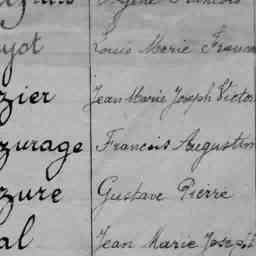 yot Louis Marie Franc
zier Jean Marie Joseph Victor
zurage Francois Augustin
zure Gustave Pierre
al Jean Marie Joseph